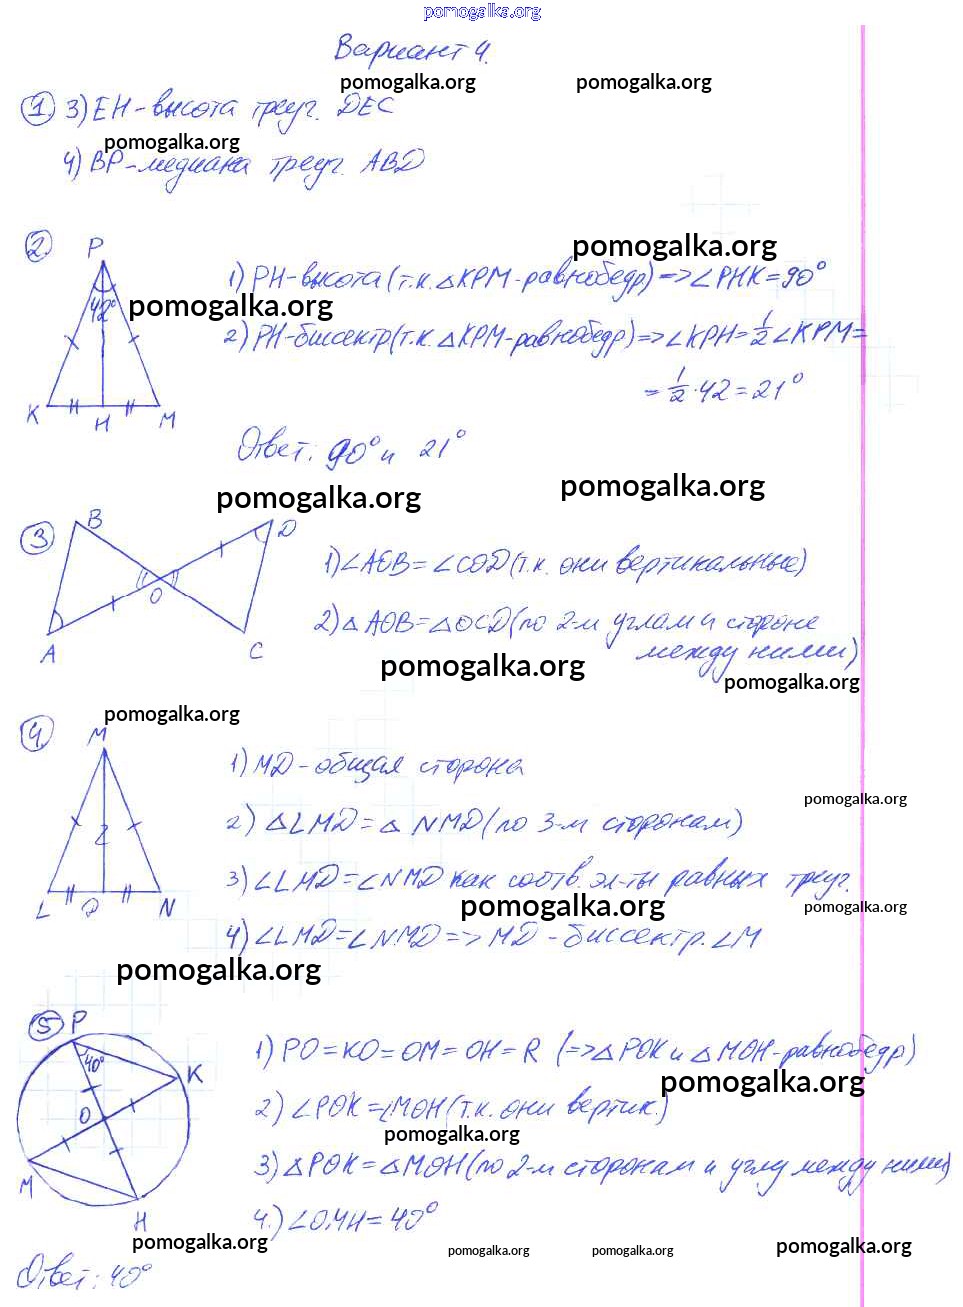 pomogalka.org
Вариант 4.
pomogalka.org pomogalka.org
1. 3) EH - высота треуг. DEC
pomogalka.org
4) BP - медиана треуг. ABD
2.
P
pomogalka.org
42°
1) PH - высота (т.к. △KPM - равнобедр) => ∠PHK = 90°
pomogalka.org
2) PH - биссектр (т.к. △KPM - равнобедр) => ∠KPH = 1/2 ∠KPM =
= 1/2 · 42 = 21°
K H M
Ответ: 90° и 21°
pomogalka.org pomogalka.org
3
B D
O
A C
1) ∠AOB = ∠COD (т.к. они вертикальные)
2) △AOB = △OCD (по 2-м углам и стороне
между ними)
pomogalka.org pomogalka.org
4.
pomogalka.org
M
L D N
1) MD - общая сторона
pomogalka.org
2) △LMD = △NMD (по 3-м сторонам)
3) ∠LMD = ∠NMD как соотв. эл-ты равных треуг.
pomogalka.org pomogalka.org
4) ∠LMD = ∠NMD => MD - биссектр. ∠M
pomogalka.org
5
P
40°
K
O
M
H
1) PO = KO = OM = OH = R (=> △POK и △MOH - равнобедр)
pomogalka.org
2) ∠POK = ∠MOH (т.к. они вертик.)
pomogalka.org
3) △POK = △MOH (по 2-м сторонам и углу между ними)
4.) ∠OMH = 40°
pomogalka.org pomogalka.org pomogalka.org pomogalka.org
Ответ: 40°